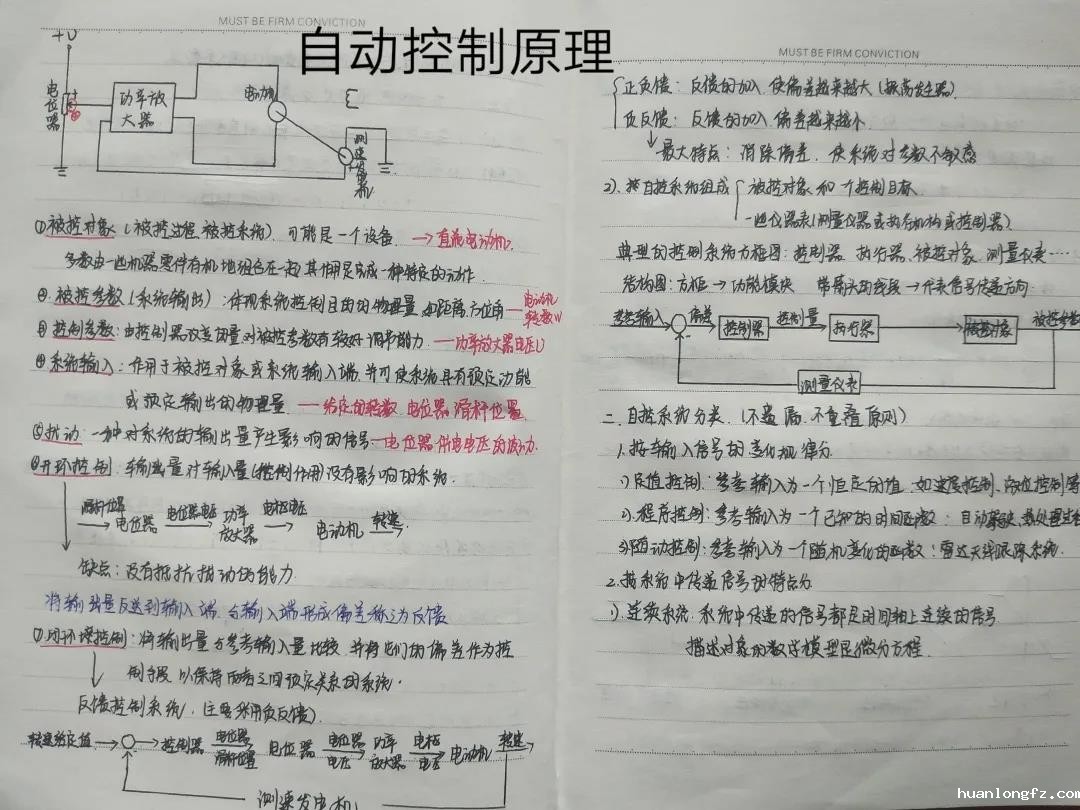 MUST BE FIRM CONVICTION
自动控制原理
+U
电位器
功率放大器
电动机
测速发电机
①被控对象(被控过程、被控系统). 可能是一个设备. →直流电动机.
多数由一些机器零件有机地组合在一起,其作用是完成一种特定的动作.
②.被控参数(系统输出):体现系统控制目的的物理量,如距离、方位角—电动机转数N
③控制参数:由控制器改变的量,对被控参数有较好调节能力.—功率放大器电压U
④系统输入:作用于被控对象或系统输入端,并可使系统具有预定功能
或预定输出的物理量.—给定的转数 电位器滑杆位置
⑤扰动:一种对系统的输出量产生影响的信号—电位器供电电压的波动.
⑥开环控制:输出量对输入量(控制作用)没有影响的系统.
滑杆位置 电位器 电位器电压 功率放大器 电枢电压 电动机 转速
缺点:没有抵抗扰动的能力.
将输出量反送到输入端,与输入端形成偏差称之为反馈
⑦闭环控制:将输出量与参考输入量比较,并将它们的偏差作为控
制手段,以保持两者之间预定关系的系统.
反馈控制系统.(主要采用负反馈).
转速给定值 控制器 电位器滑杆位置 电位器 电位器电压 功率放大器 电枢电压 电动机 转速
测速发电机
MUST BE FIRM CONVICTION
正反馈:反馈的加入,使偏差越来越大(振荡发生器).
负反馈:反馈的加入,偏差越来越小.
最大特点:消除偏差.使系统对参数不敏感
2).按自控系统组成 被控对象和一个控制目标.
一些仪器表(测量仪器或执行机构或控制器)
典型的控制系统方框图:控制器、执行器、被控对象、测量仪表…
结构图:方框→功能模块 带箭头的线段→代表信号传递方向.
参考输入 偏差 控制器 控制量 执行器 被控对象 被控参数
测量仪表
二、自控系统分类.(不遗漏.不重叠原则)
1.按输入信号的变化规律分.
1)定值控制.参考输入为一个恒定的值.如速度控制、液位控制等
2).程序控制:参考输入为一个已知的时间函数:自动驾驶、热处理
3)随动控制:参考输入为一个随机变化的函数:雷达天线跟踪系统.
2.按系统中传递信号的特点分
1).连续系统.系统中传递的信号都是时间轴上连续的信号.
描述对象的数学模型是微分方程.
huanlongfz.com